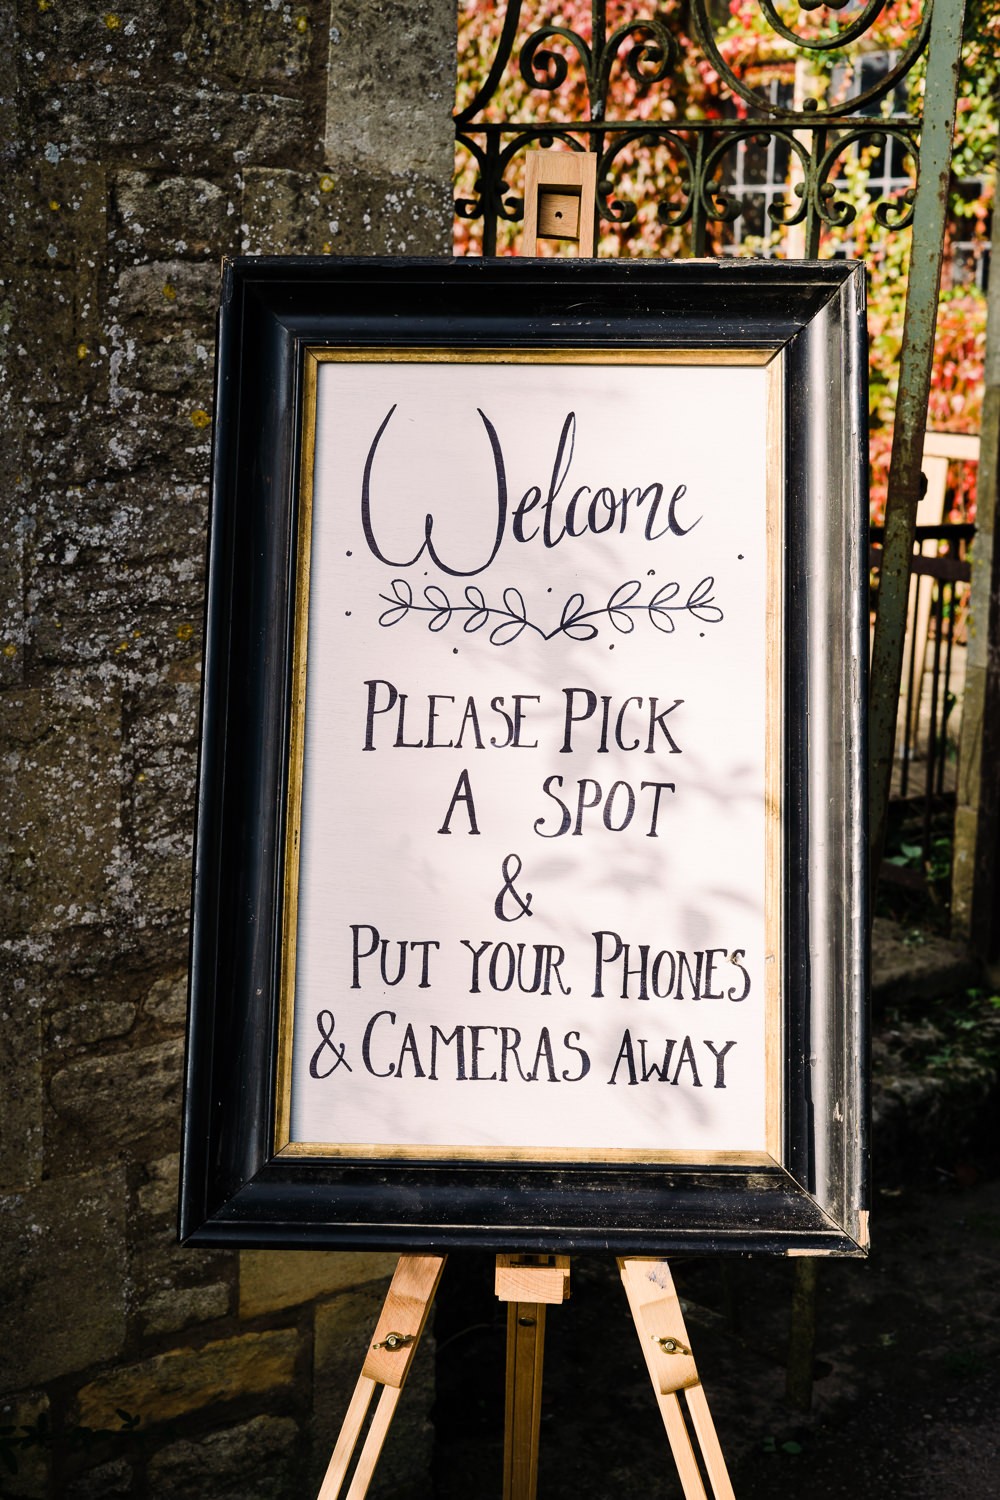 Welcome
PLEASE PICK
A SPOT
&
PUT YOUR PHONES
& CAMERAS AWAY